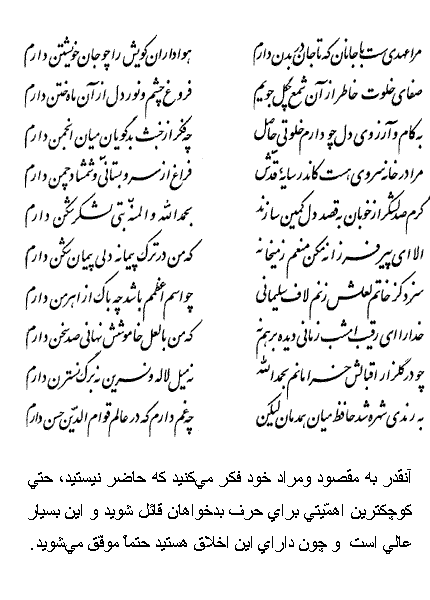 مرا عهدیست با جانان که تا جان در بدن دارم هواداران کویش را چو جان خویشتن دارم
صفای خلوت خاطر از آن شمع چگل جویم فروغ چشم و نور دل از آن ماه ختن دارم
به کام و آرزوی دل چو دارم خلوتی حاصل چه فکر از خبث بدگویان میان انجمن دارم
مرا در خانه سروی هست کاندر سایهٔ قدش فراغ از سرو بستانی و شمشاد چمن دارم
گرم صد لشکر از خوبان به قصد دل کمین سازند بحمدالله و المنه بتی لشکرشکن دارم
الا ای پیر فرزانه مکن منعم ز میخانه که من در ترک پیمانه دلی پیمان شکن دارم
سزد کز خاتم لعلش زنم لاف سلیمانی چو اسم اعظمم باشد چه باک از اهرمن دارم
خدا را ای رقیب امشب زمانی دیده بر هم نه که من با لعل خاموشش نهانی صد سخن دارم
چو در گلزار اقبالش خرامانم بحمدالله نه میل لاله و نسرین نه برگ نسترن دارم
به رندی شهره شد حافظ میان همدمان لیکن چه غم دارم که در عالم قوام الدین حسن دارم
آنقدر به مقصود ومراد خود فکر مي‌کنيد که حاضر نيستيد، حتي
کوچکترين اهمّيتي براي حرف بدخواهان قائل شويد و اين بسيار
عالي است و چون داراي اين اخلاق هستيد حتماً موفق مي‌شويد.